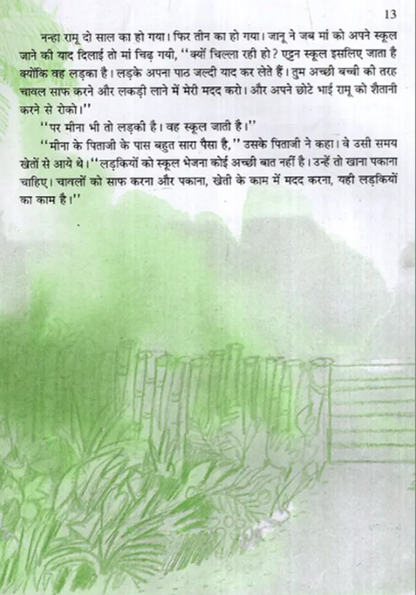 13
नन्हा रामू दो साल का हो गया। फिर तीन का हो गया। जानू ने जब मां को अपने स्कूल
जाने की याद दिलाई तो मां चिढ़ गयी, “क्यों चिल्ला रही हो? एट्टन स्कूल इसलिए जाता है
क्योंकि वह लड़का है। लड़के अपना पाठ जल्दी याद कर लेते हैं। तुम अच्छी बच्ची की तरह
चावल साफ करने और लकड़ी लाने में मेरी मदद करो। और अपने छोटे भाई रामू को शैतानी
करने से रोको।”
“पर मीना भी तो लड़की है। वह स्कूल जाती है।”
“मीना के पिताजी के पास बहुत सारा पैसा है,” उसके पिताजी ने कहा। वे उसी समय
खेतों से आये थे। “लड़कियों को स्कूल भेजना कोई अच्छी बात नहीं है। उन्हें तो खाना पकाना
चाहिए। चावलों को साफ करना और पकाना, खेती के काम में मदद करना, यही लड़कियों
का काम है।”